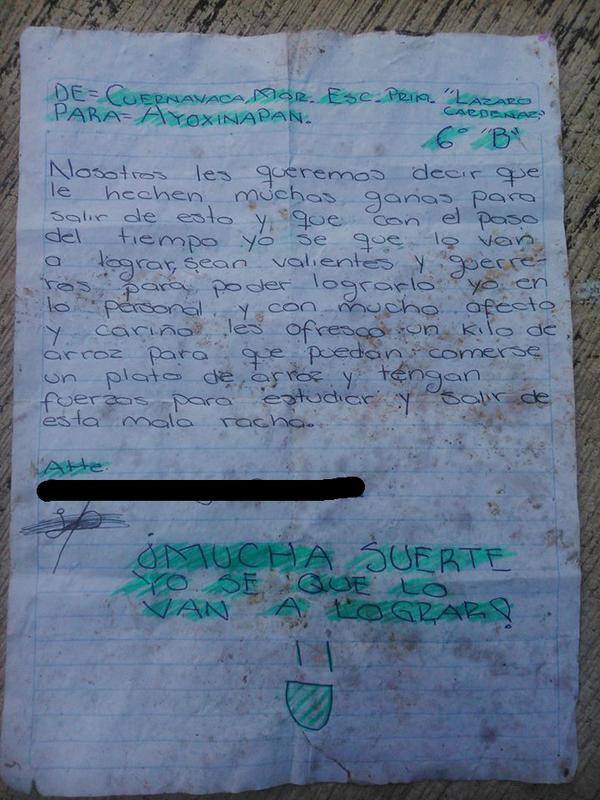 DE= CUERNAVACA MOR. ESC. PRIM. "LAZARO
CARDENAZ"
PARA= AYOXINAPAN.
6° "B"
Nosotros les queremos decir que
le hechen muchas ganas para
salir de esto y que con el paso
del tiempo yo se que lo van
a lograr, sean valientes y guerre-
ros para poder lograrlo yo en
lo personal y con mucho afecto
y cariño les ofresco un kilo de
arroz para que puedan comerse
un plato de arroz y tengan
fuerzas para estudiar y salir de
esta mala racha.
Atte
¡MUCHA SUERTE
YO SE QUE LO
VAN A LOGRAR!